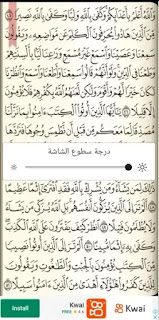 وَٱللَّهُ أَعْلَمُ بِأَعْدَآئِكُمْ وَكَفَىٰ بِٱللَّهِ وَلِيًّا وَكَفَىٰ بِٱللَّهِ نَصِيرًا ٤٥
مِّنَ ٱلَّذِينَ هَادُوا۟ يُحَرِّفُونَ ٱلْكَلِمَ عَن مَّوَاضِعِهِۦ وَيَقُولُونَ
سَمِعْنَا وَعَصَيْنَا وَٱسْمَعْ غَيْرَ مُسْمَعٍ وَرَٰعِنَا لَيًّۢا بِأَلْسِنَتِهِمْ
وَطَعْنًا فِى ٱلدِّينِ وَلَوْ أَنَّهُمْ قَالُوا۟ سَمِعْنَا وَأَطَعْنَا وَٱسْمَعْ وَٱنظُرْنَا
لَكَانَ خَيْرًا لَّهُمْ وَأَقْوَمَ وَلَٰكِن لَّعَنَهُمُ ٱللَّهُ بِكُفْرِهِمْ فَلَا يُؤْمِنُونَ
إِلَّا قَلِيلًا ٤٦ يَٰٓأَيُّهَا ٱلَّذِينَ أُوتُوا۟ ٱلْكِتَٰبَ ءَامِنُوا۟ بِمَا نَزَّلْنَا
مُصَدِّقًا لِّمَا مَعَكُم مِّن قَبْلِ أَن نَّطْمِسَ وُجُوهًا فَنَرُدَّهَا
درجة سطوع الشاشة
ذَٰلِكَ لِمَن يَشَآءُ وَمَن يُشْرِكْ بِٱللَّهِ فَقَدِ ٱفْتَرَىٰٓ إِثْمًا عَظِيمًا
٤٨ أَلَمْ تَرَ إِلَى ٱلَّذِينَ يُزَكُّونَ أَنفُسَهُم بَلِ ٱللَّهُ يُزَكِّى مَن يَشَآءُ
وَلَا يُظْلَمُونَ فَتِيلًا ٤٩ ٱنظُرْ كَيْفَ يَفْتَرُونَ عَلَى ٱللَّهِ ٱلْكَذِبَ
وَكَفَىٰ بِهِۦٓ إِثْمًا مُّبِينًا ٥٠ أَلَمْ تَرَ إِلَى ٱلَّذِينَ أُوتُوا۟ نَصِيبًا
مِّنَ ٱلْكِتَٰبِ يُؤْمِنُونَ بِٱلْجِبْتِ وَٱلطَّٰغُوتِ وَيَقُولُونَ
لِلَّذِينَ كَفَرُوا۟ هَٰٓؤُلَآءِ أَهْدَىٰ مِنَ ٱلَّذِينَ ءَامَنُوا۟ سَبِيلًا ٥١
Install
Kwai
Kwai